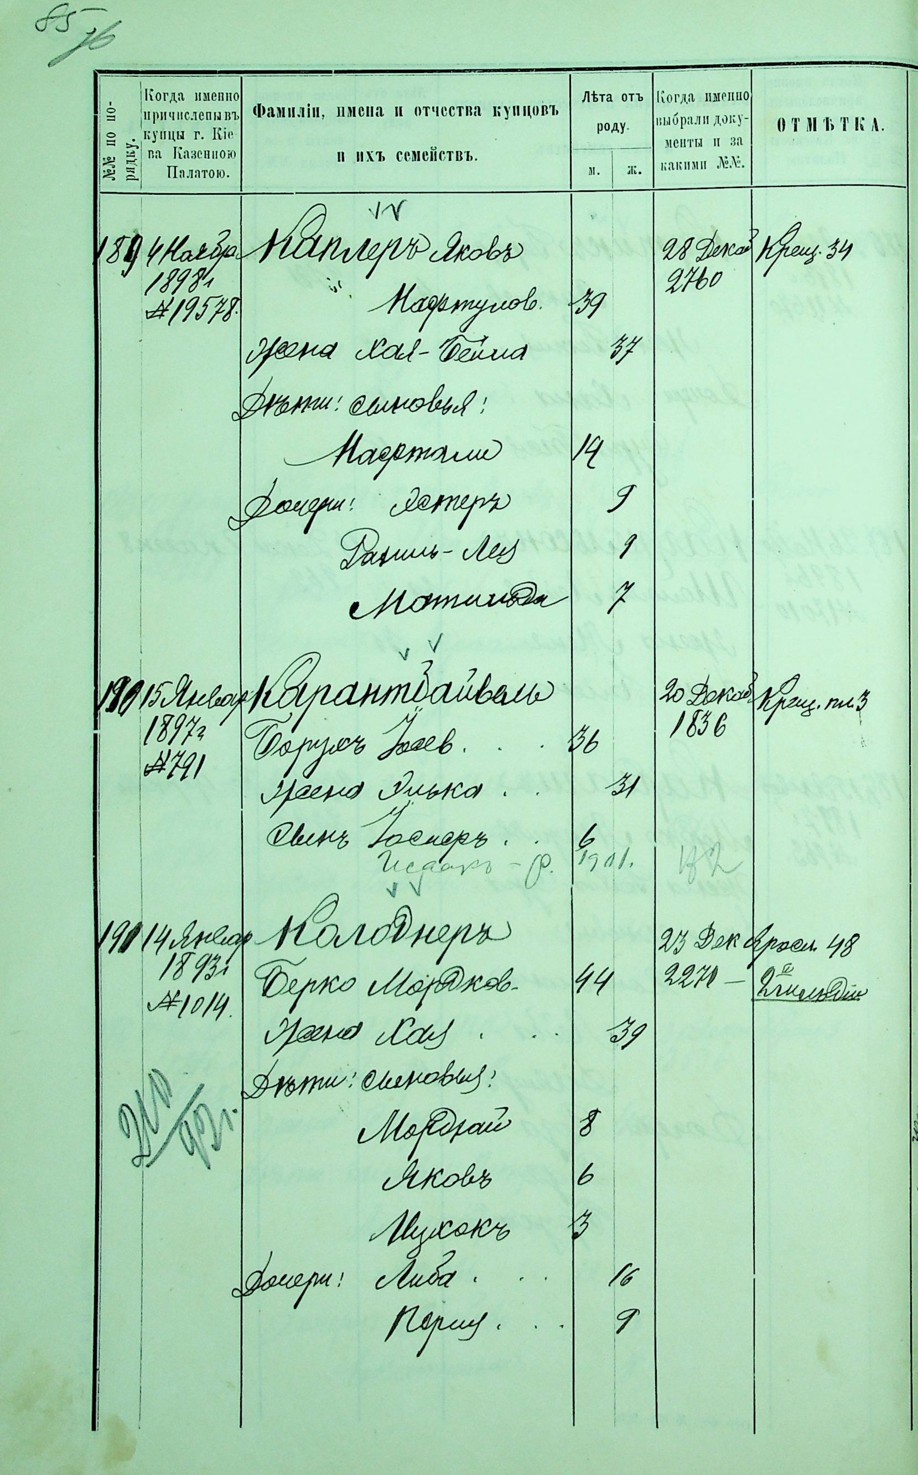 85
76
№№ по по-
рядку.
Когда именно
причислены въ
купцы г. Кіе-
ва Казенною
Палатою.
Фамиліи, имена и отчества купцовъ
и ихъ семействъ.
Лѣта отъ
роду.
м. ж.
Когда именно
выбрали доку-
менты и за
какими №№.
ОТМѢТКА.
189 4 Ноября Каплеръ Яковъ 28 Декаб Крещ. 34
1898 г 2760
№ 19578. Нафтулов. 39
Жена Хая-Бейла 37
Дѣти: сыновья:
Нафтали 14
Дочери: Эстеръ 9
Рахиль-Лея 9
Матильда 7
190 15 Январ Карантбайвель 20 Декаб Крещ. пл. 3
1897 г 1836
Борухъ 36
№ 791
Жена Элька 31
Сынъ Іосифъ 6
Исаакъ - р. 1901.
191 14 Январ Колоднеръ 23 Дек Яросл. 48
1893 г
Берко Мордков. 44 2271 — 2й гильдіи
№ 1014.
Жена Хая 39
Дѣти: сыновья:
Мордхай 8
Яковъ 6
Ицхокъ 3
Дочери: Либа 16
Перля 9